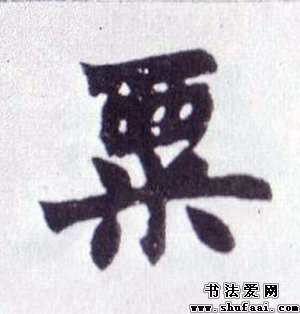 粟
书法爱网
www.shufaai.com